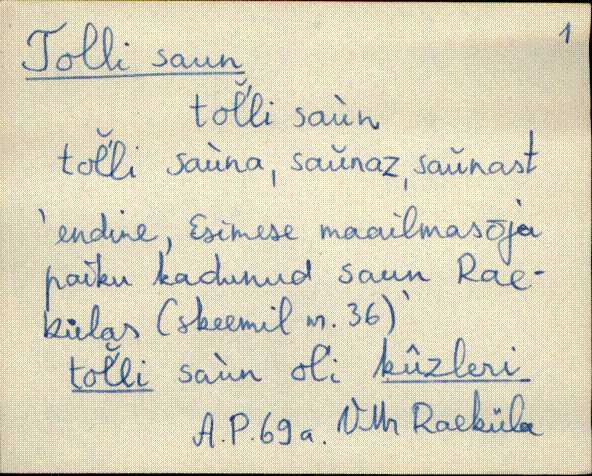 1
Tolli saun
tol̆'li saùn
tol̆'li saùna, saŭnaz, saŭnast
'endine, Esimese maailmasōja
paiku kadunud saun Rae-
külas (skeemil nr. 36)'
tol̆'li saùn ol'i kûzleri
A.P. 69 a. VMr Raeküla